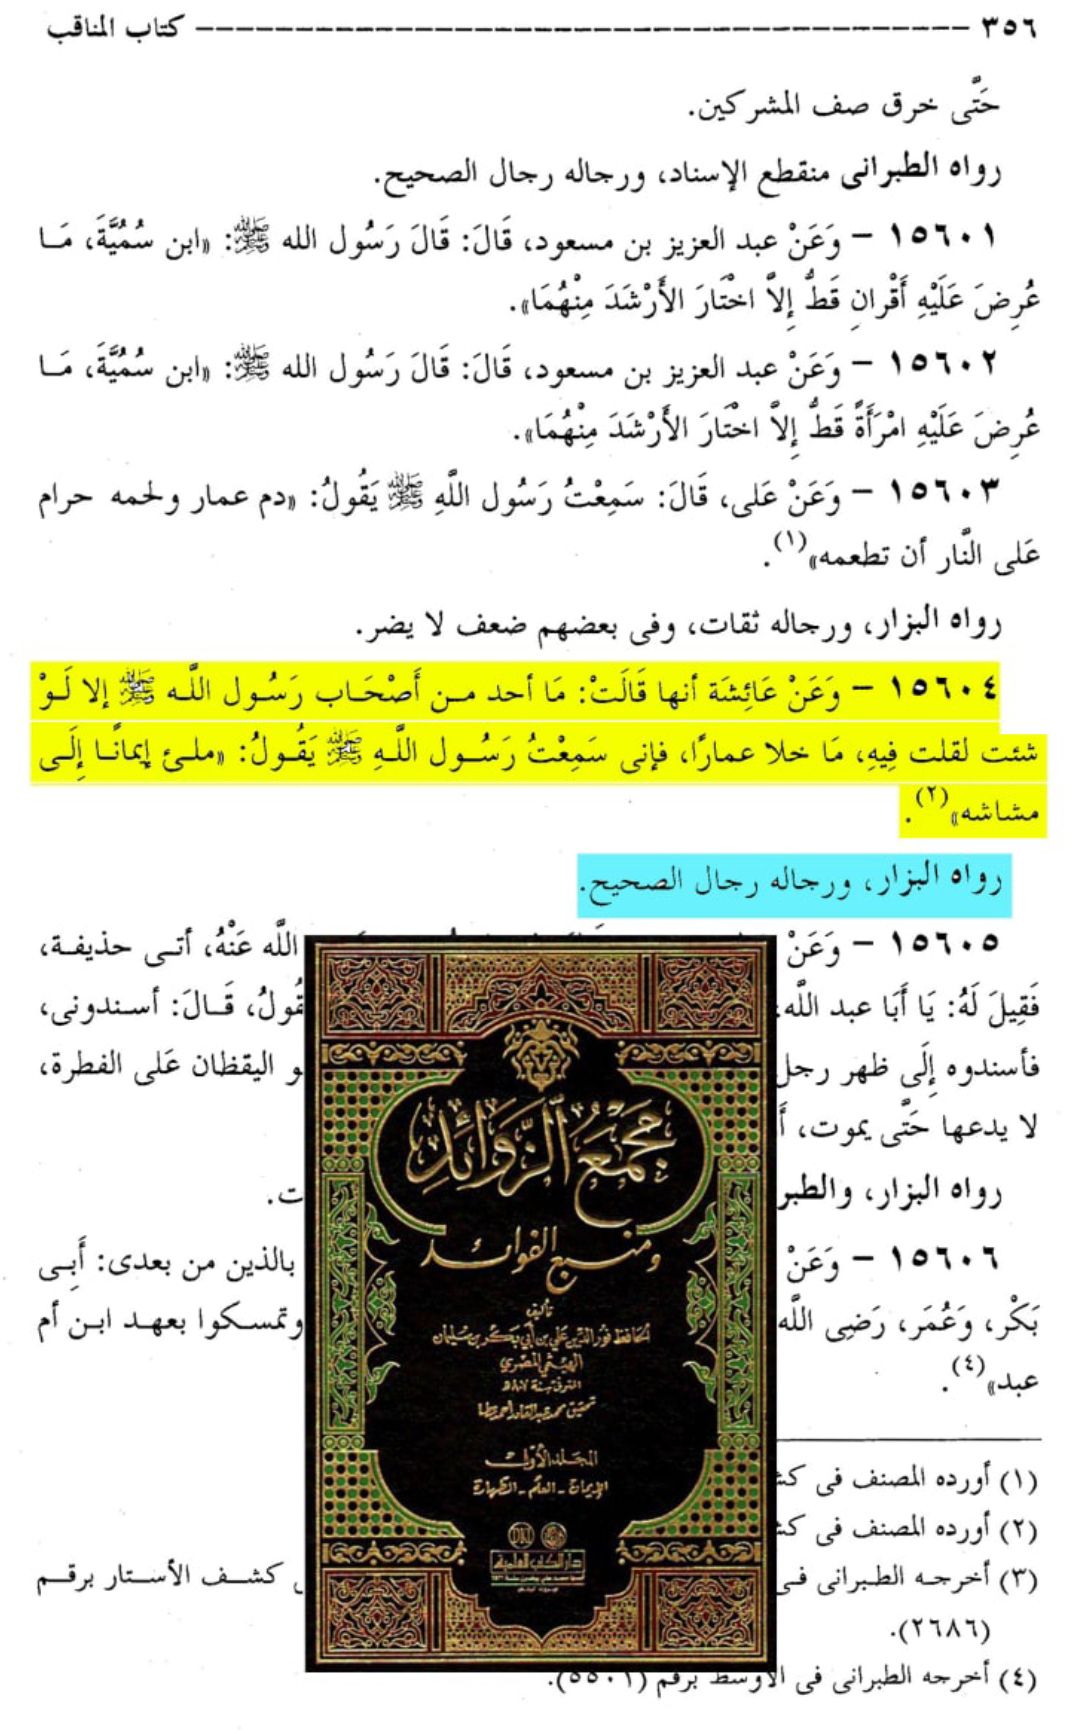 ٣٥٦ ــــــــــــــــــــــــــــــــــــــــــ كتاب المناقب
حَتَّى خرق صف المشركين.
رواه الطبرانى منقطع الإسناد، ورجاله رجال الصحيح.
١٥٦٠١ – وَعَنْ عبد العزيز بن مسعود، قَالَ: قَالَ رَسُول الله ﷺ: «ابن سُمُيَّةَ، مَا
عُرِضَ عَلَيْهِ أَقْرانِ قَطُّ إِلاَّ اخْتَارَ الأَرْشَدَ مِنْهُمَا».
١٥٦٠٢ – وَعَنْ عبد العزيز بن مسعود، قَالَ: قَالَ رَسُول الله ﷺ: «ابن سُمُيَّةَ، مَا
عُرِضَ عَلَيْهِ امْرَأَةً قَطُّ إِلاَّ اخْتَارَ الأَرْشَدَ مِنْهُمَا».
١٥٦٠٣ – وَعَنْ عَلى، قَالَ: سَمِعْتُ رَسُول اللَّهِ ﷺ يَقُولُ: «دم عمار ولحمه حرام
عَلى النَّار أن تطعمه»(١).
رواه البزار، ورجاله ثقات، وفى بعضهم ضعف لا يضر.
١٥٦٠٤ – وَعَنْ عَائِشَة أنها قَالَتْ: مَا أحد من أَصْحَاب رَسُول اللَّه ﷺ إلا لَوْ
شئت لقلت فِيهِ، مَا خلا عمارًا، فإنى سَمِعْتُ رَسُول اللَّهِ ﷺ يَقُولُ: «ملئ إيمانًا إِلَى
مشاشه»(٢).
رواه البزار، ورجاله رجال الصحيح.
١٥٦٠٥ – وَعَنْ اللَّه عَنْهُ، أتى حذيفة،
فَقِيلَ لَهُ: يَا أَبَا عبد اللَّه، قُولُ، قَالَ: أسندونى،
فأسندوه إِلَى ظهر رجل و اليقظان عَلى الفطرة،
لا يدعها حَتَّى يموت،
رواه البزار، والطبر ت.
١٥٦٠٦ – وَعَنْ بالذين من بعدى: أَبِى
بَكْر، وَعُمَر، رَضِى اللَّه وتمسكوا بعهد ابن أم
عبد»(٤).
مَجْمَعُ الزَّوَائِدِ
ومنبع الفوائد
تأليف
الحافظ نور الدين علي بن أبي بكر بن سليمان
الهيثمي المصري
المتوفى سنة ٨٠٧ هـ
تحقيق محمد عبد القادر أحمد عطا
المجلد الأول
الإيمان - العلم - الطهارة
دار الكتب العلمية
(١) أورده المصنف فى كش
(٢) أورده المصنف فى كش
(٣) أخرجه الطبرانى فى كشف الأستار برقم
(٢٦٨٦).
(٤) أخرجه الطبرانى فى الأوسط برقم (٥٥٠١).